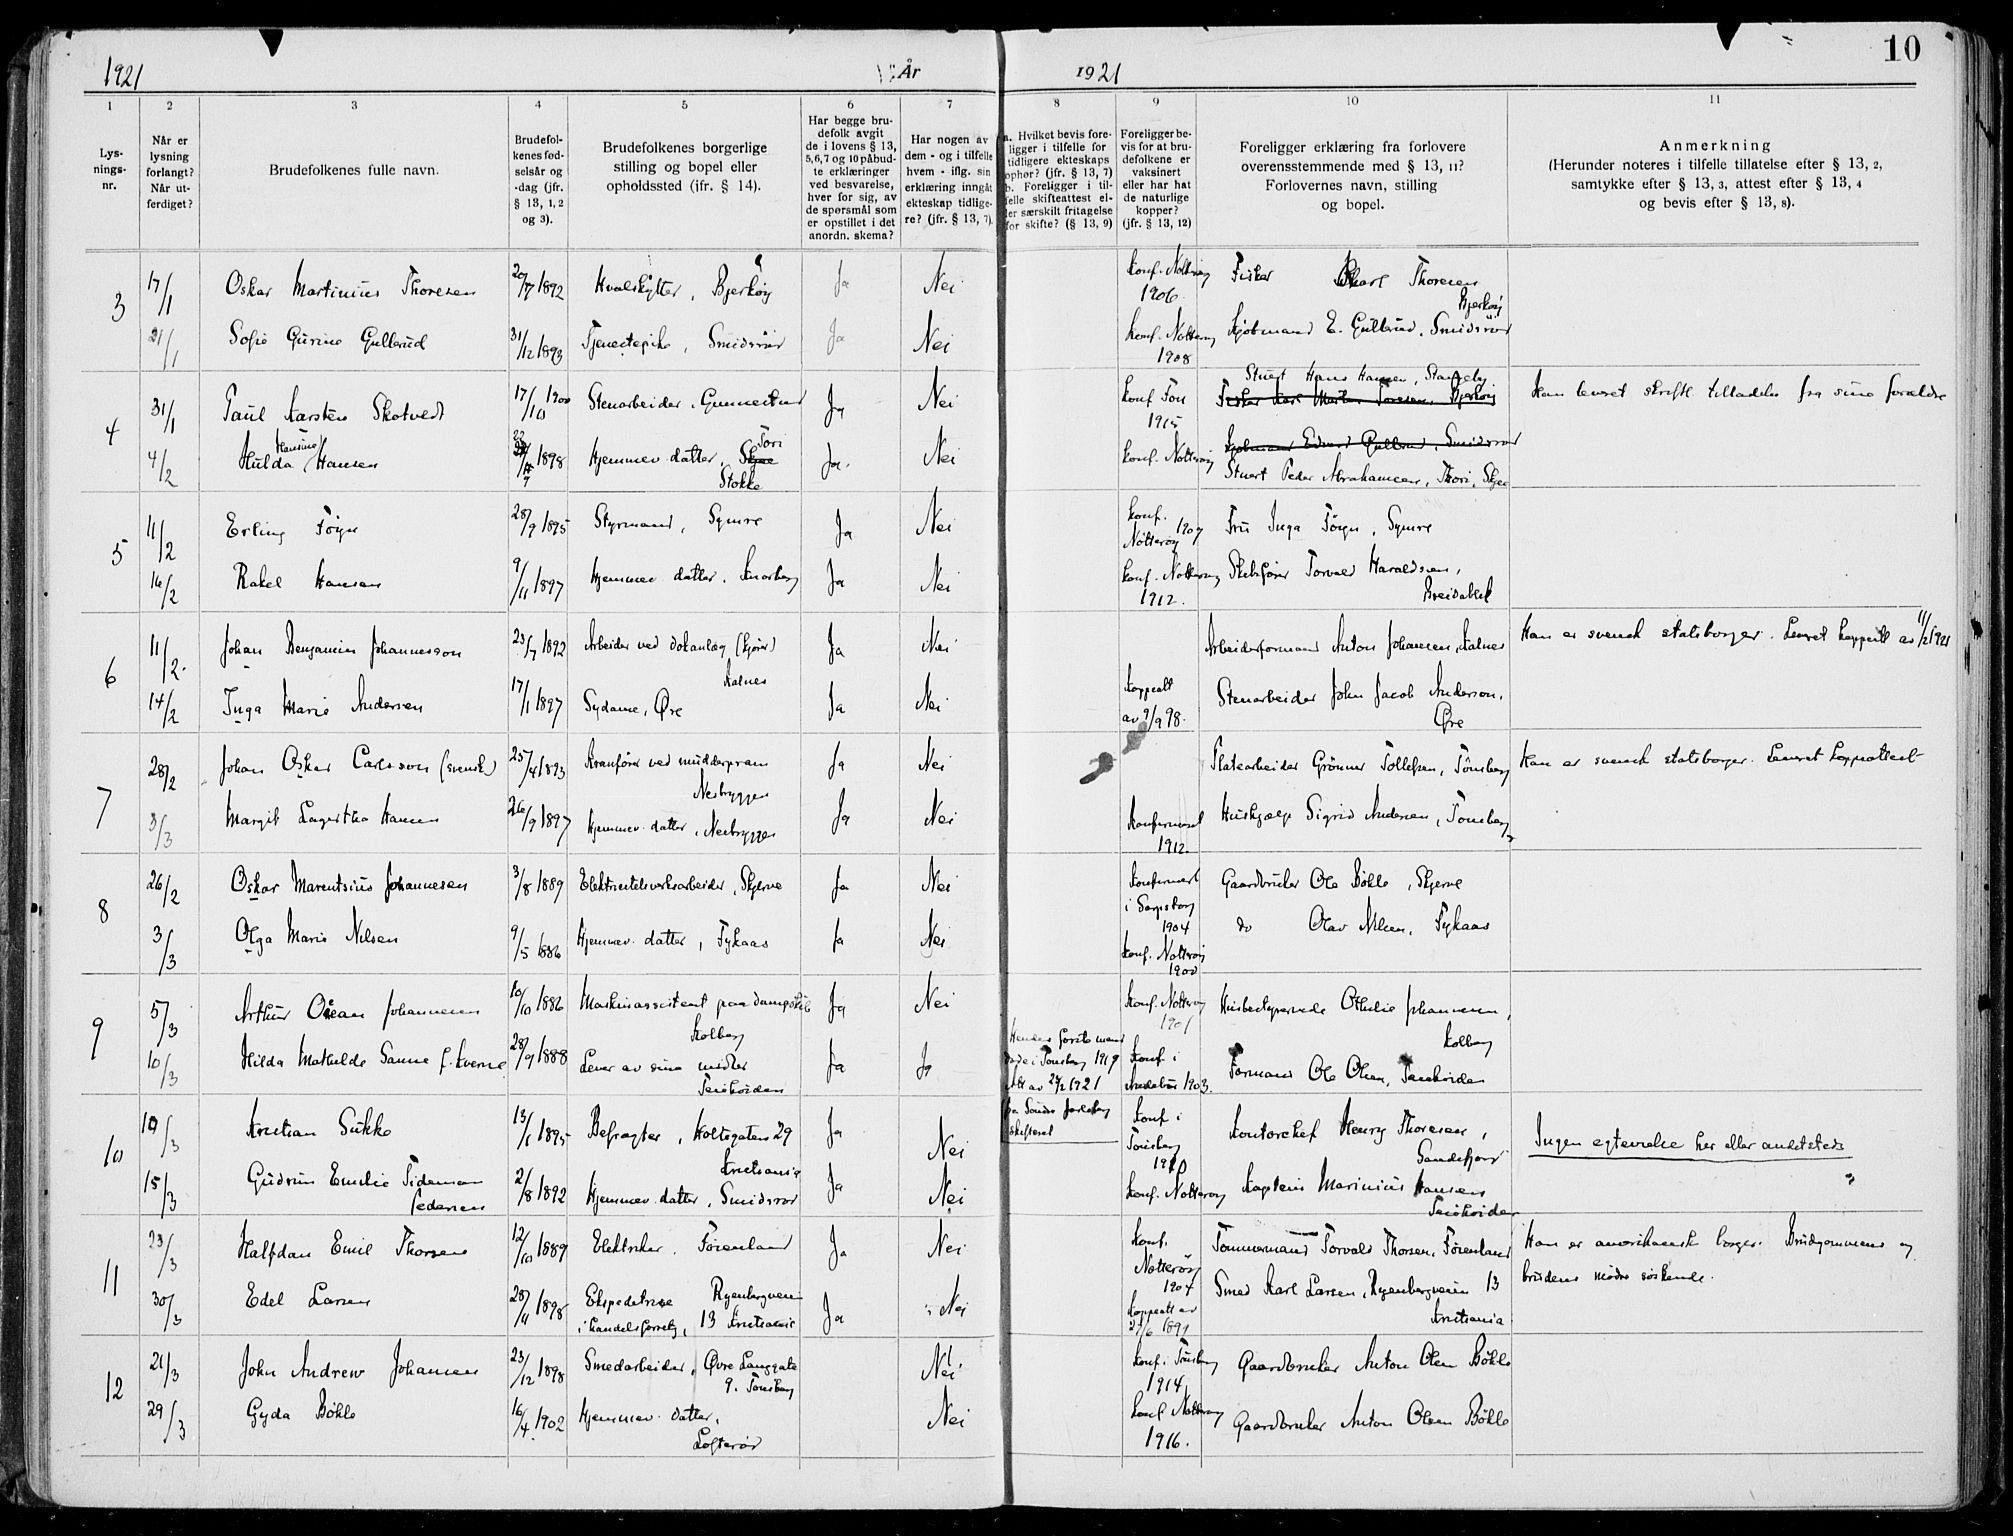 10
1921 År 1921
1 2 3 4 5 6 7 8 9 10 11
Lys-
nings-
nr.
Når er
lysning
forlangt?
Når ut-
ferdiget?
Brudefolkenes fulle navn.
Brudefol-
kenes fød-
selsår og
-dag (jfr.
§ 13, 1, 2
og 3).
Brudefolkenes borgerlige
stilling og bopel eller
opholdssted (ifr. § 14).
Har begge bru-
defolk avgit
de i lovens § 13,
5, 6, 7 og 10 påbud-
te erklæringer
ved besvarelse,
hver for sig, av
de spørsmål som
er opstillet i det
anordn. skema?
Har nogen av
dem - og i tilfelle
hvem - iflg. sin
erklæring inngåt
ekteskap tidlige-
re? (jfr. § 13, 7).
a. Hvilket bevis fore-
ligger i tilfelle for
tidligere ekteskaps
ophør? (jfr. § 13, 7)
b. Foreligger i til-
felle skifteattest el-
ler særskilt fritagelse
for skifte? (§ 13, 9)
Foreligger be-
vis for at bru-
defolkene er
vaksinert
eller har hat
de naturlige
kopper?
(jfr. § 13, 12)
Foreligger erklæring fra forlovere
overensstemmende med § 13, 11?
Forlovernes navn, stilling
og bopel.
Anmerkning
(Herunder noteres i tilfelle tillatelse efter § 13, 2,
samtykke efter § 13, 3, attest efter § 13, 4
og bevis efter § 13, 8).
3 17/1 Oskar Martinius Thoresen 20/7 1892 Hvalskytter, Bjerkøy Ja Nei Konf. Nøtterøy 1906 Fisker Karl Thoresen Bjerkøy
21/1 Sofie Gurine Gullerud 31/12 1893 Tjenestepike, Smidsrød Ja Nei Konf. Nøtterøy 1908 Kjøbmand E. Gullerud, Smidsrød
4 31/1 Paul Karsten Skotvedt 17/10 1900 Stenarbeider, Ja Nei Konf. 1915 Stuert Hans Hansen, Fisker Karl Thoresen, Bjerkøy Han leveret skriftl. tilladelse fra sine forældre
4/2 Hulda Hansine Hansen 1898 Hjemmev. datter, Skjee Stokke Ja. Nei Konf. Nøtterøy Kjøbmand Edvard Gullerud, Smidsrød
Stuert Peder Abrahamsen, Thori, Skjee
5 11/2 Erling Føyn 28/9 1895 Styrmand, Synsre Ja Nei Konf. Nøtterøy 1907 Fru Inga Føyn, Synsre
16/2 Rakel Hansen 9/11 1897 Hjemmev. datter, Knarberg Ja Nei Konf. Nøtterøy 1912. Skibsfører Torvald Haraldsen, Breidablik
6 11/2. Johan Benjamin Johannesson 23/7 1892 Arbeider ved dokanlæg (Kjøre) Kalnes Ja Nei Arbeiderformand Anton Johansen, Kalnes Han er svensk statsborger. Leveret koppeatt. av 11/2 1921
14/2 Inga Marie Andersen 17/1 1897 Sydame, Øre Ja Nei Koppeatt av 9/9 98. Stenarbeider John Jacob Anderson, Øre
7 28/2 Johan Oskar Carlsson (svensk) 25/4 1893 Kranfører ved mudderpram Nesbryggen Ja Nei Platearbeider Grønner Tollefsen, Tønsberg Han er svensk statsborger. Leveret koppeattest
3/3 Margit Lagertha Hansen 26/9 1897 Hjemmev. datter, Nesbryggen Ja Nei Konfirmeret 1912. Hushjælp Sigrid Andersen, Tønsberg
8 26/2 Oskar Marentsius Johannesen 3/8 1889 Elektricitetsverksarbeider, Skjerve Ja Nei Konfirmert i Sarpsborg 1904 Gaardbruker Ole Bøhle, Skjerve
3/3 Olga Marie Nilsen 9/5 1886 Hjemmev. datter, Tykaas Ja Nei Konf. Nøtterøy 1900 do Olav Nilsen, Tykaas
9 5/3 Arthur Oskar Johannesen 10/10 1886 Maskinassistent paa dampskib Kolberg Ja Nei Konf. Nøtterøy 1901 Husbestyrerinde Othilie Johannesen, Kolberg
10/3 Hilda Mathilde Sanne f. Kverne 28/9 1888 Lever av sine midler Teiehøiden Ja Ja Hendes første mand døde i Tønsberg 1919 Att av 2 1921 fra Søndre Jarlsberg skifteret Konf. i Andebu 1903. Formand Ole Olsen, Teiehøiden
10 10/3 Kristian Sukke 13/1 1895 Befragter, Holtegaten 29 Kristiania Ja Nei Konf i Tønsberg 1910 Kontorchef Henry Thoresen, Sandefjord Ingen egtevielse her eller andetsteds
15/3 Gudrun Emilie Tideman Pedersen 2/8 1892 Hjemmev. datter, Smidsrød Ja Nei Konf. Nøtterøy Kaptein Marinius Hansen Teiehøiden "
11 23/3 Halfdan Emil Thorsen 12/10 1889 Elektriker, Føienland Ja Nei Konf. Nøtterøy 1904 Tømmermand Torvald Thorsen, Føienland Han er amerikansk borger. Brudgommens og
30/3 Edel Larsen 28/11 1898 Ekspeditrise i handelsforretn, Ryenbergveien 13 Kristiania Ja Nei Koppeatt av 27/6 1899 Smed Karl Larsen, Ryenbergveien 13 Kristiania brudens mødre søskende.
12 21/3 John Andrew Johansen 23/12 1898 Smedarbeider, Øvre Langgate 9. Tønsberg Nei Konf. i Tønsberg 1914 Gaardbruker Anton Olsen Bøhle
29/3 Gyda Bøhle 16/4 1902 Hjemmev. datter, Lofterød Nei Konf Nøtterøy 1916. Gaardbruker Anton Olsen Bøhle